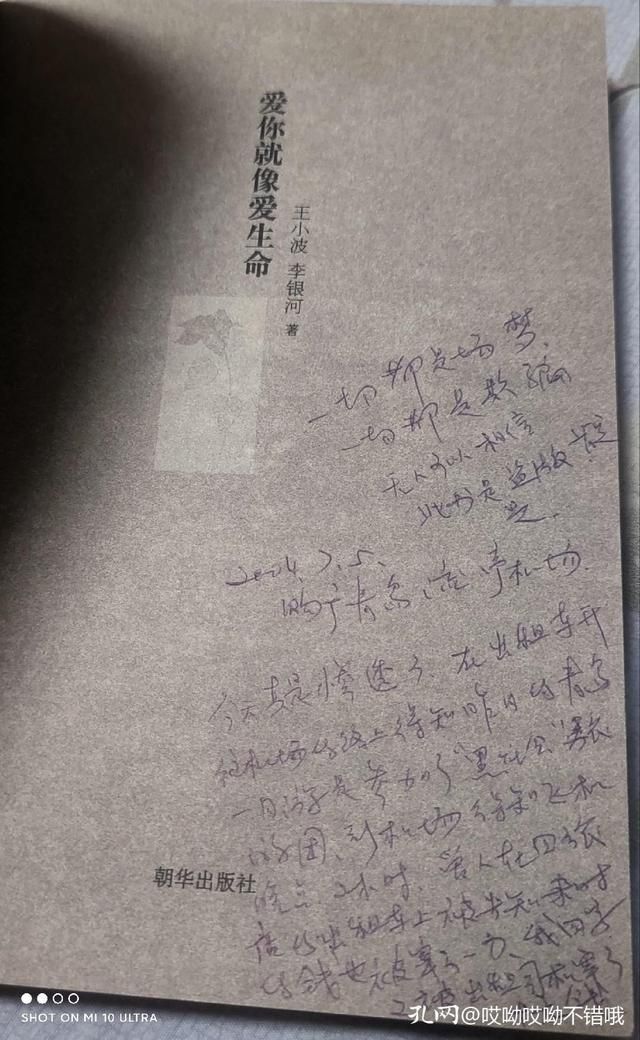 爱你就像爱生命
王小波 李银河 著
一切都是场梦、
一切都是欺骗
无人可以相信
此书是盗版
2004.7.5.
购于青岛流亭机场.
今天真是惨透了、在出租车开
往机场的路上得知昨日的青岛
一日游是参加了"黑社会"旅
的团、到机场得知飞机
晚点2小时、
店的出租车上被告知来时
的钱也被宰了一刀、我回
出租司机宰了
朝华出版社
SHOT ON MI 10 ULTRA
孔网@哎呦哎呦不错哦